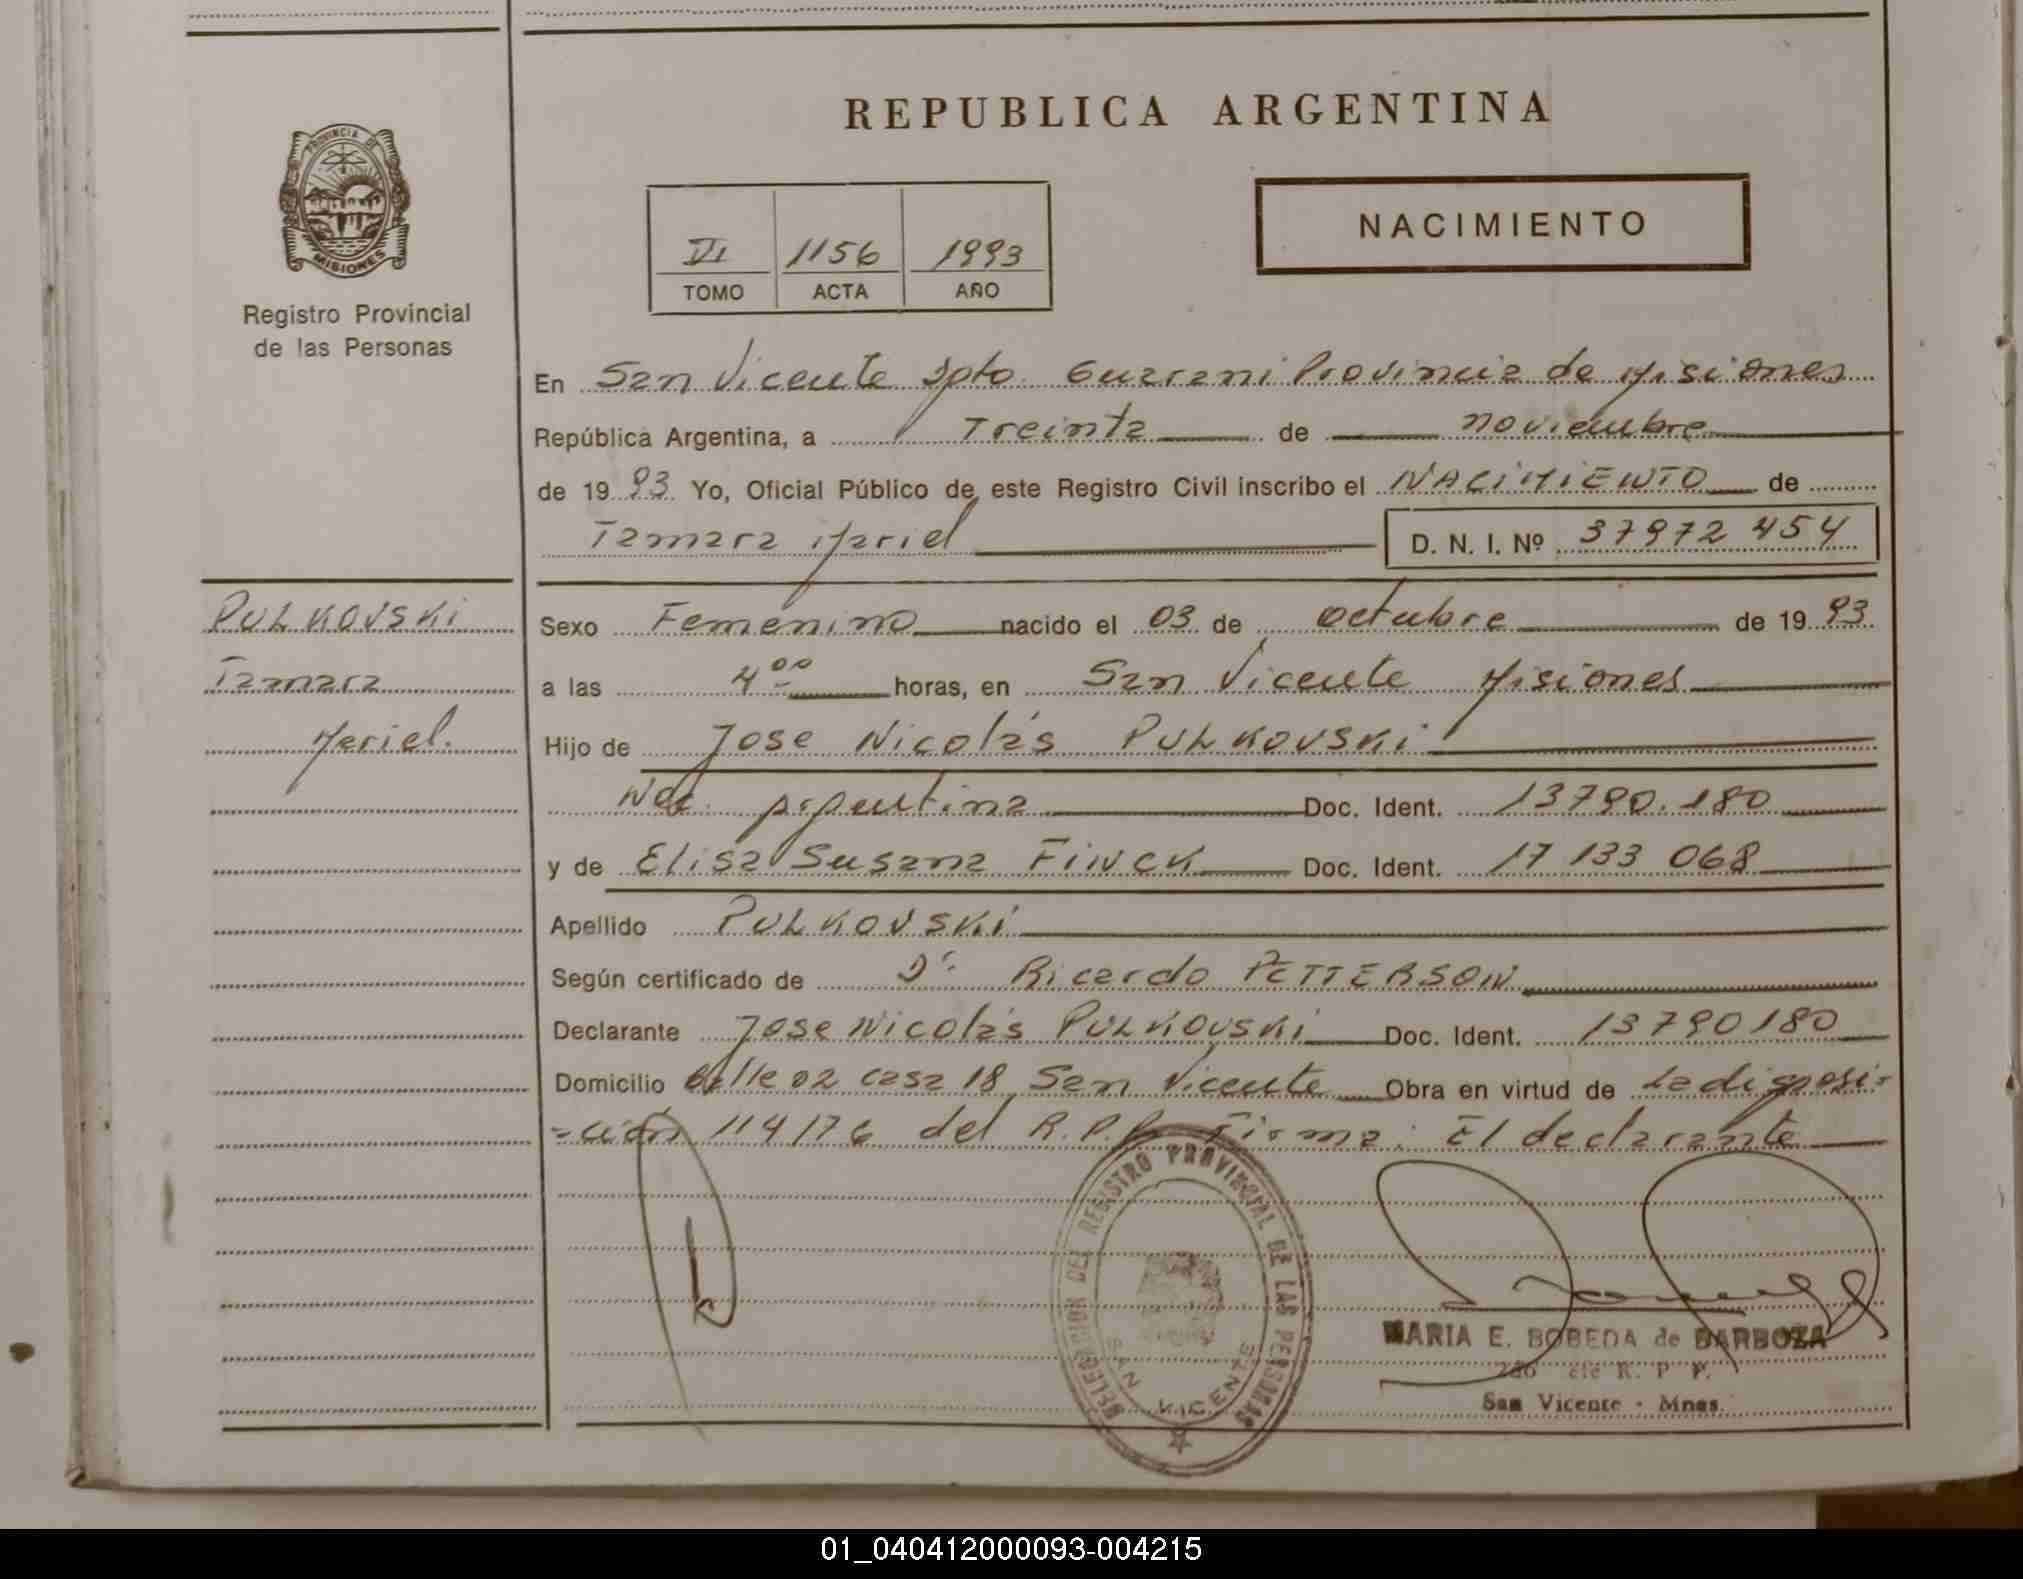 REPUBLICA ARGENTINA
PROVINCIA DE
MISIONES
Registro Provincial
de las Personas
NACIMIENTO
VI 1156 1993
TOMO ACTA AÑO
En San Vicente Dpto. Guarani Provincia de Misiones
República Argentina, a Treinta de noviembre
de 1993 Yo, Oficial Público de este Registro Civil inscribo el NACIMIENTO de
Tamara Mariel D. N. I. Nº 37972 454
PULKOVSKI
Tamara
Mariel.
Sexo Femenino nacido el 03 de octubre de 1993
a las 4⁰⁰ horas, en San Vicente Misiones
Hijo de Jose Nicolás PULKOVSKI
Nac. Argentina Doc. Ident. 13790.180
y de Elisa Susana FINCK Doc. Ident. 17 133 068
Apellido PULKOVSKI
Según certificado de Dr. Ricardo PETTERSON
Declarante Jose Nicolás PULKOVSKI Doc. Ident. 13790180
Domicilio Calle 02 casa 18 San Vicente Obra en virtud de la disposi-
-ción 114/76 del R.P.P. Firma: El declarante
DELEGACION DEL REGISTRO PROVINCIAL DE LAS PERSONAS
SAN VICENTE
MARIA E. BOBEDA de BARBOZA
R. P. P.
San Vicente - Mnes.
01_040412000093-004215